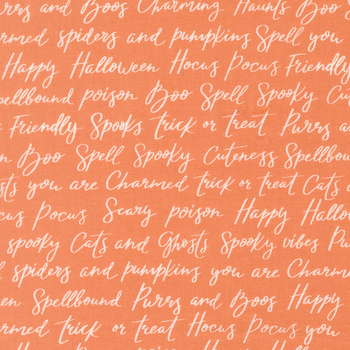 Purrs and Boos Charming Haunts Boo S
armed spiders and pumpkins Spell you
Happy Halloween Hocus Pocus Friendly
pellbound poison Boo Spell Spooky Cut
e Friendly Spooks trick or treat Purrs an
n Boo Spell Spooky Cuteness Spellbou
sts you are Charmed trick or treat Cats a
cus Pocus Scary poison Happy Hallo
spooky Cats and Ghosts Spooky vibes Pu
d spiders and pumpkins you are Charme
een Spellbound Purrs and Boos Happy
armed trick or treat Hocus Pocus you